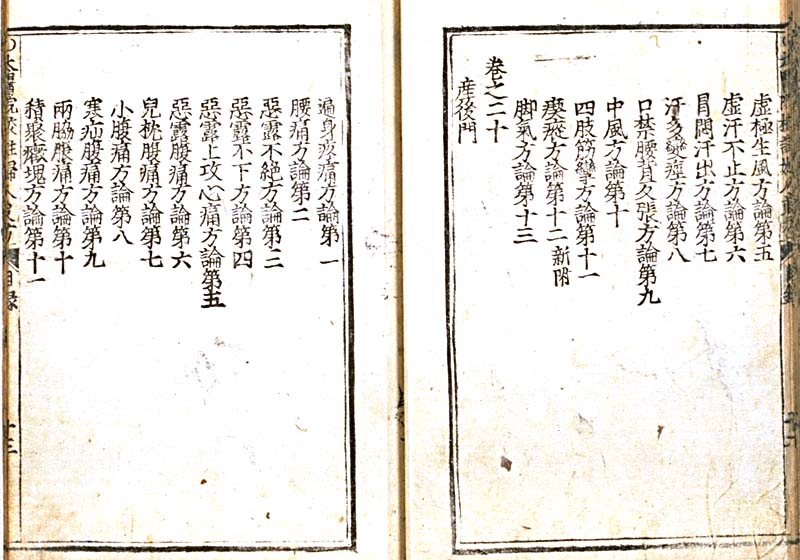 虛極生風方論第五
虛汗不止方論第六
冒悶汗出方論第七
汗多變痓方論第八
口禁腰背反張方論第九
中風方論第十
四肢筋攣方論第十一
瘈瘲方論第十二新附
脚氣方論第十三
卷之二十
産後門
遍身疼痛方論第一
腰痛方論第二
惡露不絶方論第三
惡露不下方論第四
惡露上攻心痛方論第五
惡露腹痛方論第六
兒枕腹痛方論第七
小腹痛方論第八
寒疝腹痛方論第九
兩脇脹痛方論第十
積聚癥塊方論第十一
目録
十三